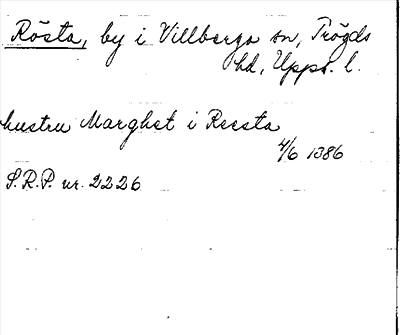 Rösta, by i Villberga sn, Trögds
hd, Upps. l.
hustru Marghet i Reesta
4/6 1386
S.R.P. nr. 2226